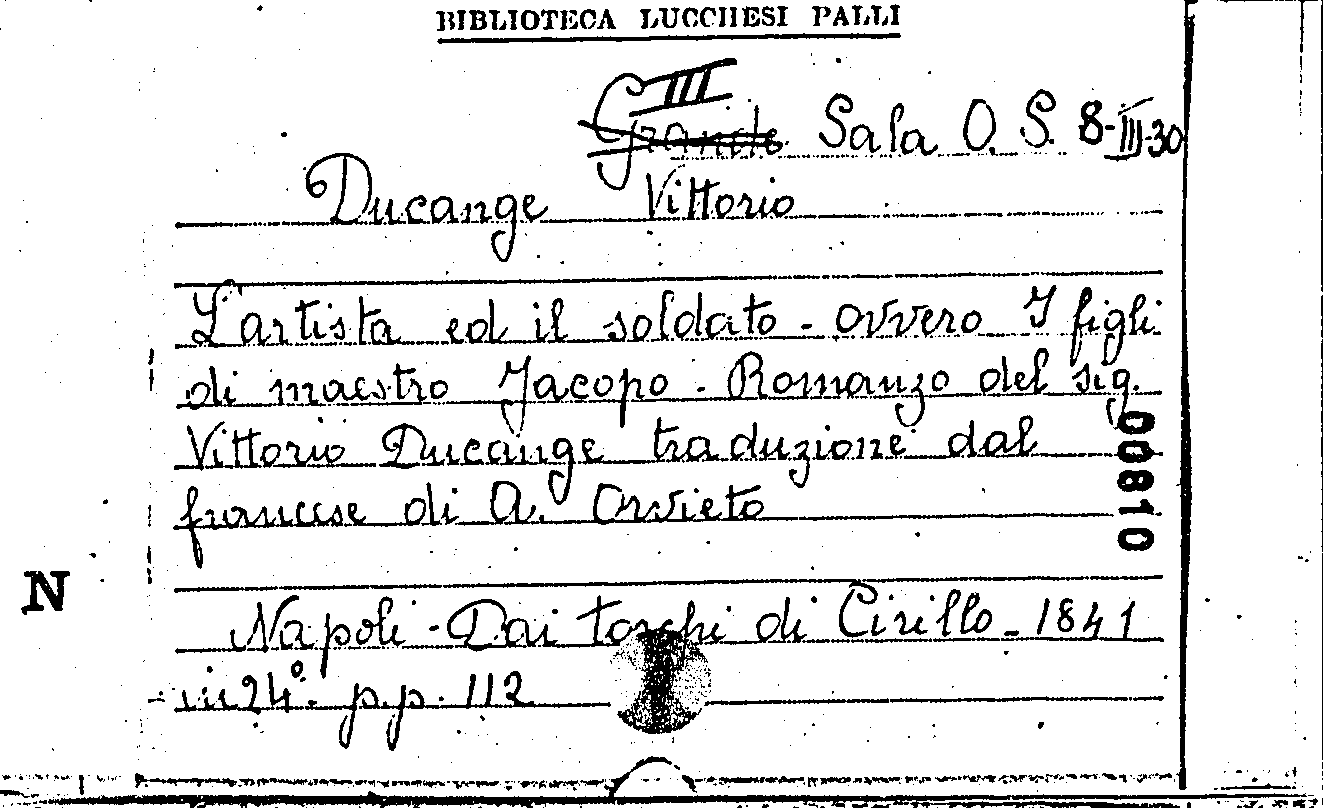 BIBLIOTECA LUCCHESI PALLI
III
Grande Sala O. S. 8-III-30
Ducange Vittorio
L'artista ed il soldato - ovvero I figli
di maestro Jacopo - Romanzo del sig.
Vittorio Ducange traduzione dal
francese di A. Orvieto
00810
N
Napoli - Dai torchi di Cirillo - 1841
- in 24°. p.p. 112